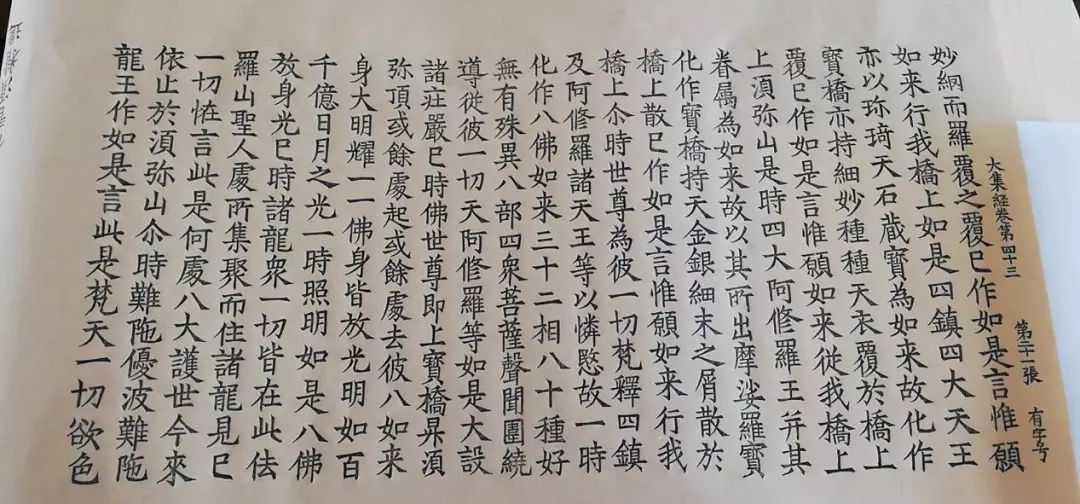 大集経卷第四十三 第二十一張 有字号
妙網而羅覆之覆已作如是言惟願
如来行我橋上如是四鎮四大天王
亦以珎琦天石蔵寶為如来故化作
寳橋亦持細妙種種天衣覆於橋上
覆已作如是言惟願如来従我橋上
上湏弥山是時四大阿修羅王并其
眷属為如来故以其所出摩娑羅寳
化作寳橋持天金銀細末之屑散於
橋上散已作如是言惟願如来行我
橋上尒時世尊為彼一切梵釋四鎮
及阿修羅諸天王等以憐愍故一時
化作八佛如来三十二相八十種好
無有殊異八部四衆菩薩聲聞圍繞
導従彼一切天阿修羅等如是大設
諸莊嚴已時佛世尊即上寳橋昇湏
弥頂或餘處起或餘處去彼八如来
身大明耀一一佛身皆放光明如百
千億日月之光一時照明如是八佛
放身光已時諸龍衆一切皆在此佉
羅山聖人處所集聚而住諸龍見已
一切恠言此是何處八大護世今來
依止於湏弥山尒時難陁優波難陁
龍王作如是言此是梵天一切欲色